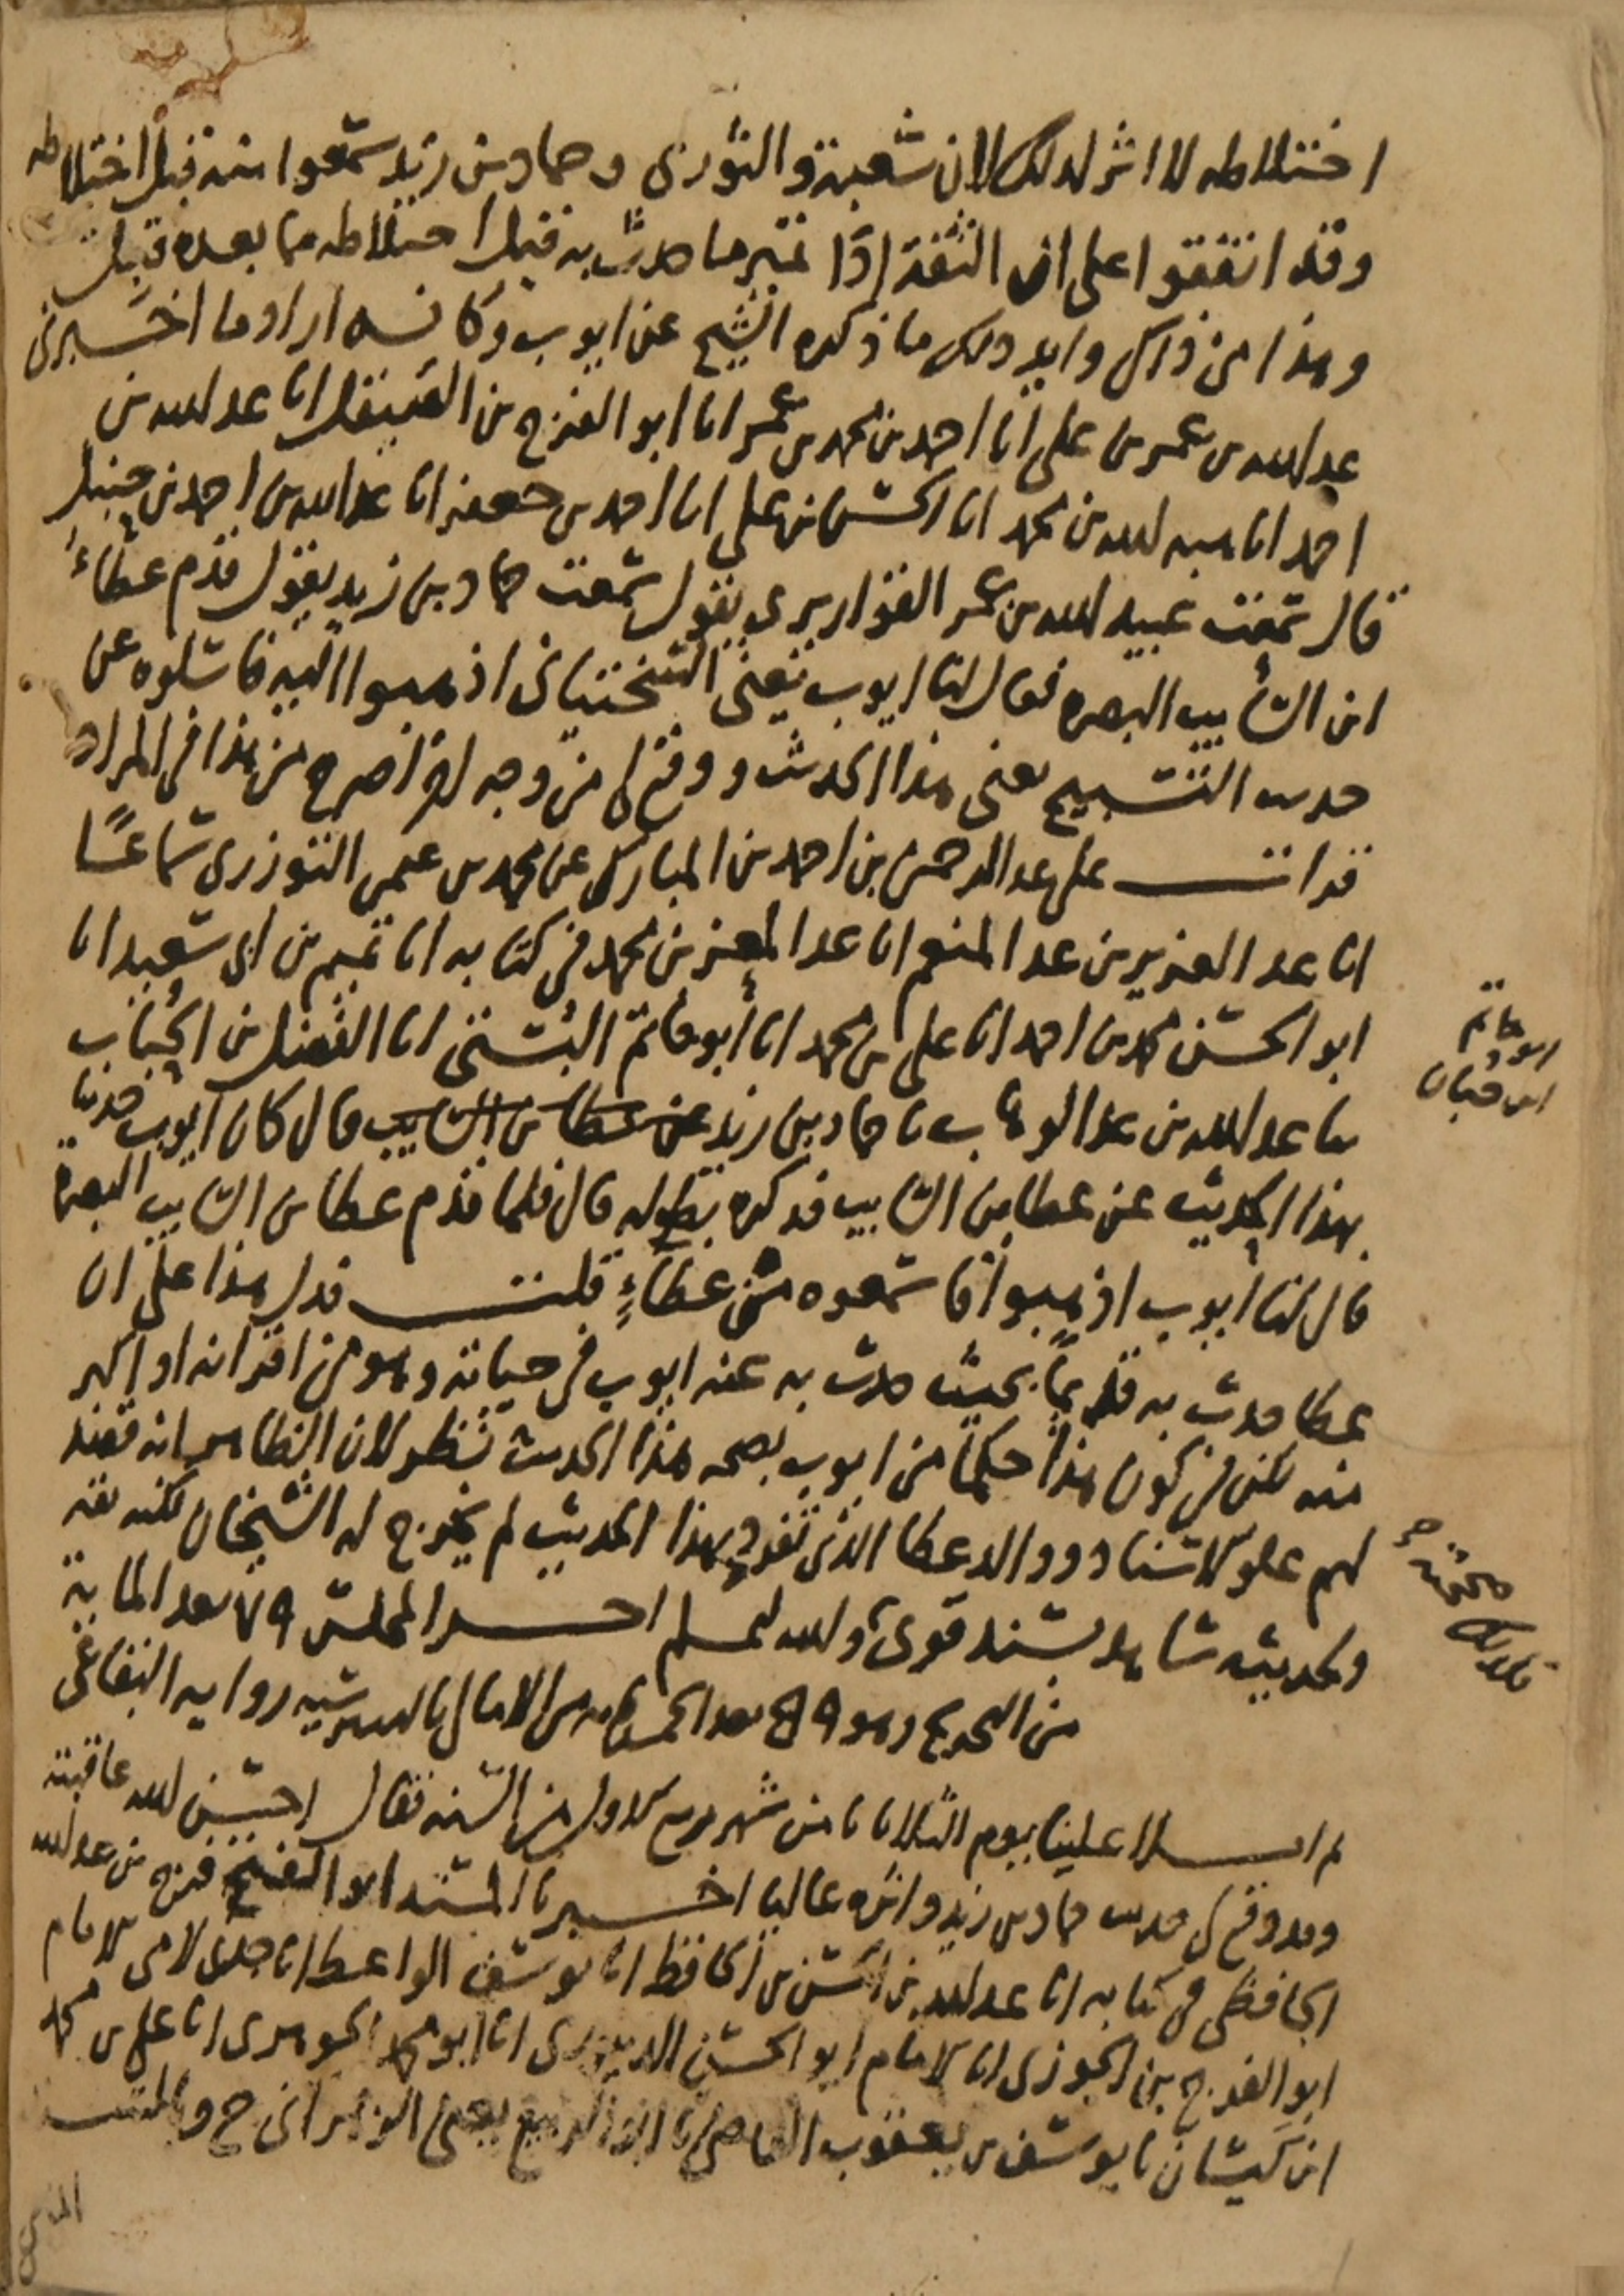 اختلاطه لا اثر لذلك لان شعبة والثوري وحماد بن زيد سمعوا منه قبل اختلاطه
وقد اتفقوا على ان الثقة اذا تميز ما حدث به قبل اختلاطه مما بعده قبل
وهذا من ذاك وايد ذلك ما ذكره الشيخ عن ايوب وكانه اراد ما اخبرني
عبد الله بن عمر بن علي انا احمد بن محمد بن عمر انا ابو الفرج بن الصيقل انا عبد الله بن
احمد انا هبه الله بن محمد انا الحسن بن علي انا احمد بن جعفر انا عبد الله بن احمد بن حنبل
قال سمعت عبيد الله بن عمر القواريري يقول سمعت حماد بن زيد يقول قدم عطاء
ابن السائب البصره فقال لنا ايوب يعني السختياني اذهبوا اليه فاسئلوه عن
حديث التسبيح يعني هذا الحديث ووقع لي من وجه اخر اصرح من هذا في المراد
قرات على عبد الرحمن بن احمد بن المبارك عن محمد بن عمر التوزري سماعا
انا عبد العزيز بن عبد المنعم انا عبد المعز بن محمد في كتابه انا تميم بن ابي سعيد انا
ابو الحسن محمد بن احمد انا علي بن محمد انا ابو حاتم البستي انا الفضل بن الحباب
ثنا عبد الله بن عبد الوهاب نا حماد بن زيد عن عطا بن السايب قال كان ايوب حدثنا
بهذا الحديث عن عطا بن السايب فذكره بطوله قال فلما قدم عطا بن السايب البصرة
قال لنا ايوب اذهبوا فاسمعوه من عطاء قلت فدل هذا على ان
عطا حدث به قديما بحيث حدث به عنه ايوب في حياته وهو من اقرانه او اكبر
منه لكن في كون هذا حكما من ايوب بصحه هذا الحديث نظر لان الظاهر انه قصد
لهم علو الاسناد ووالد عطا الذي تفرد بهذا الحديث لم يخرج له الشيخان لكنه ثقه
ولحديثه شاهد بسند قوي والله اعلم اخر المجلس ٧٩ بعد المايه
من التخريج وهو ٥٩٩ بعد الخمسمايه من الامالي بالبيبرسيه روايه البقاعي
ثم املا علينا يوم الثلاثا ثامن شهر ربيع الاول من السنه فقال احسن الله عاقبته
وقد وقع لي حديث حماد بن زيد وايده عاليا اخبرنا المسند ابو الفرج بن عبد الله
الحافظي في كتابه انا عبد الله بن الحسن بن الحافظ انا يوسف الواعظ انا جدي لامي الامام
ابو الفرج بن الجوزي انا الامام ابو الحسن الدينوري انا ابو محمد الجوهري انا علي بن محمد
ابن كيسان نا يوسف بن يعقوب القاضي نا ابو الربيع يعني الزهراني ح وبالسند
ابو حاتم
ابن حبان